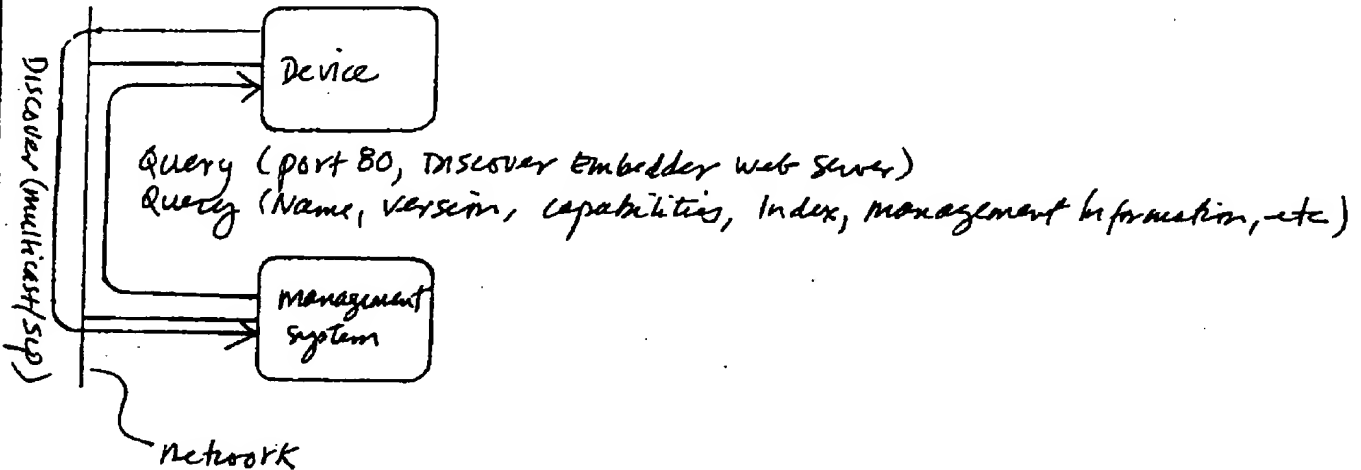 Discover (multicast/SLP)
Device
Query (port 80, Discover Embedder web server)
Query (Name, version, capabilities, Index, management Information, etc)
management
system
network